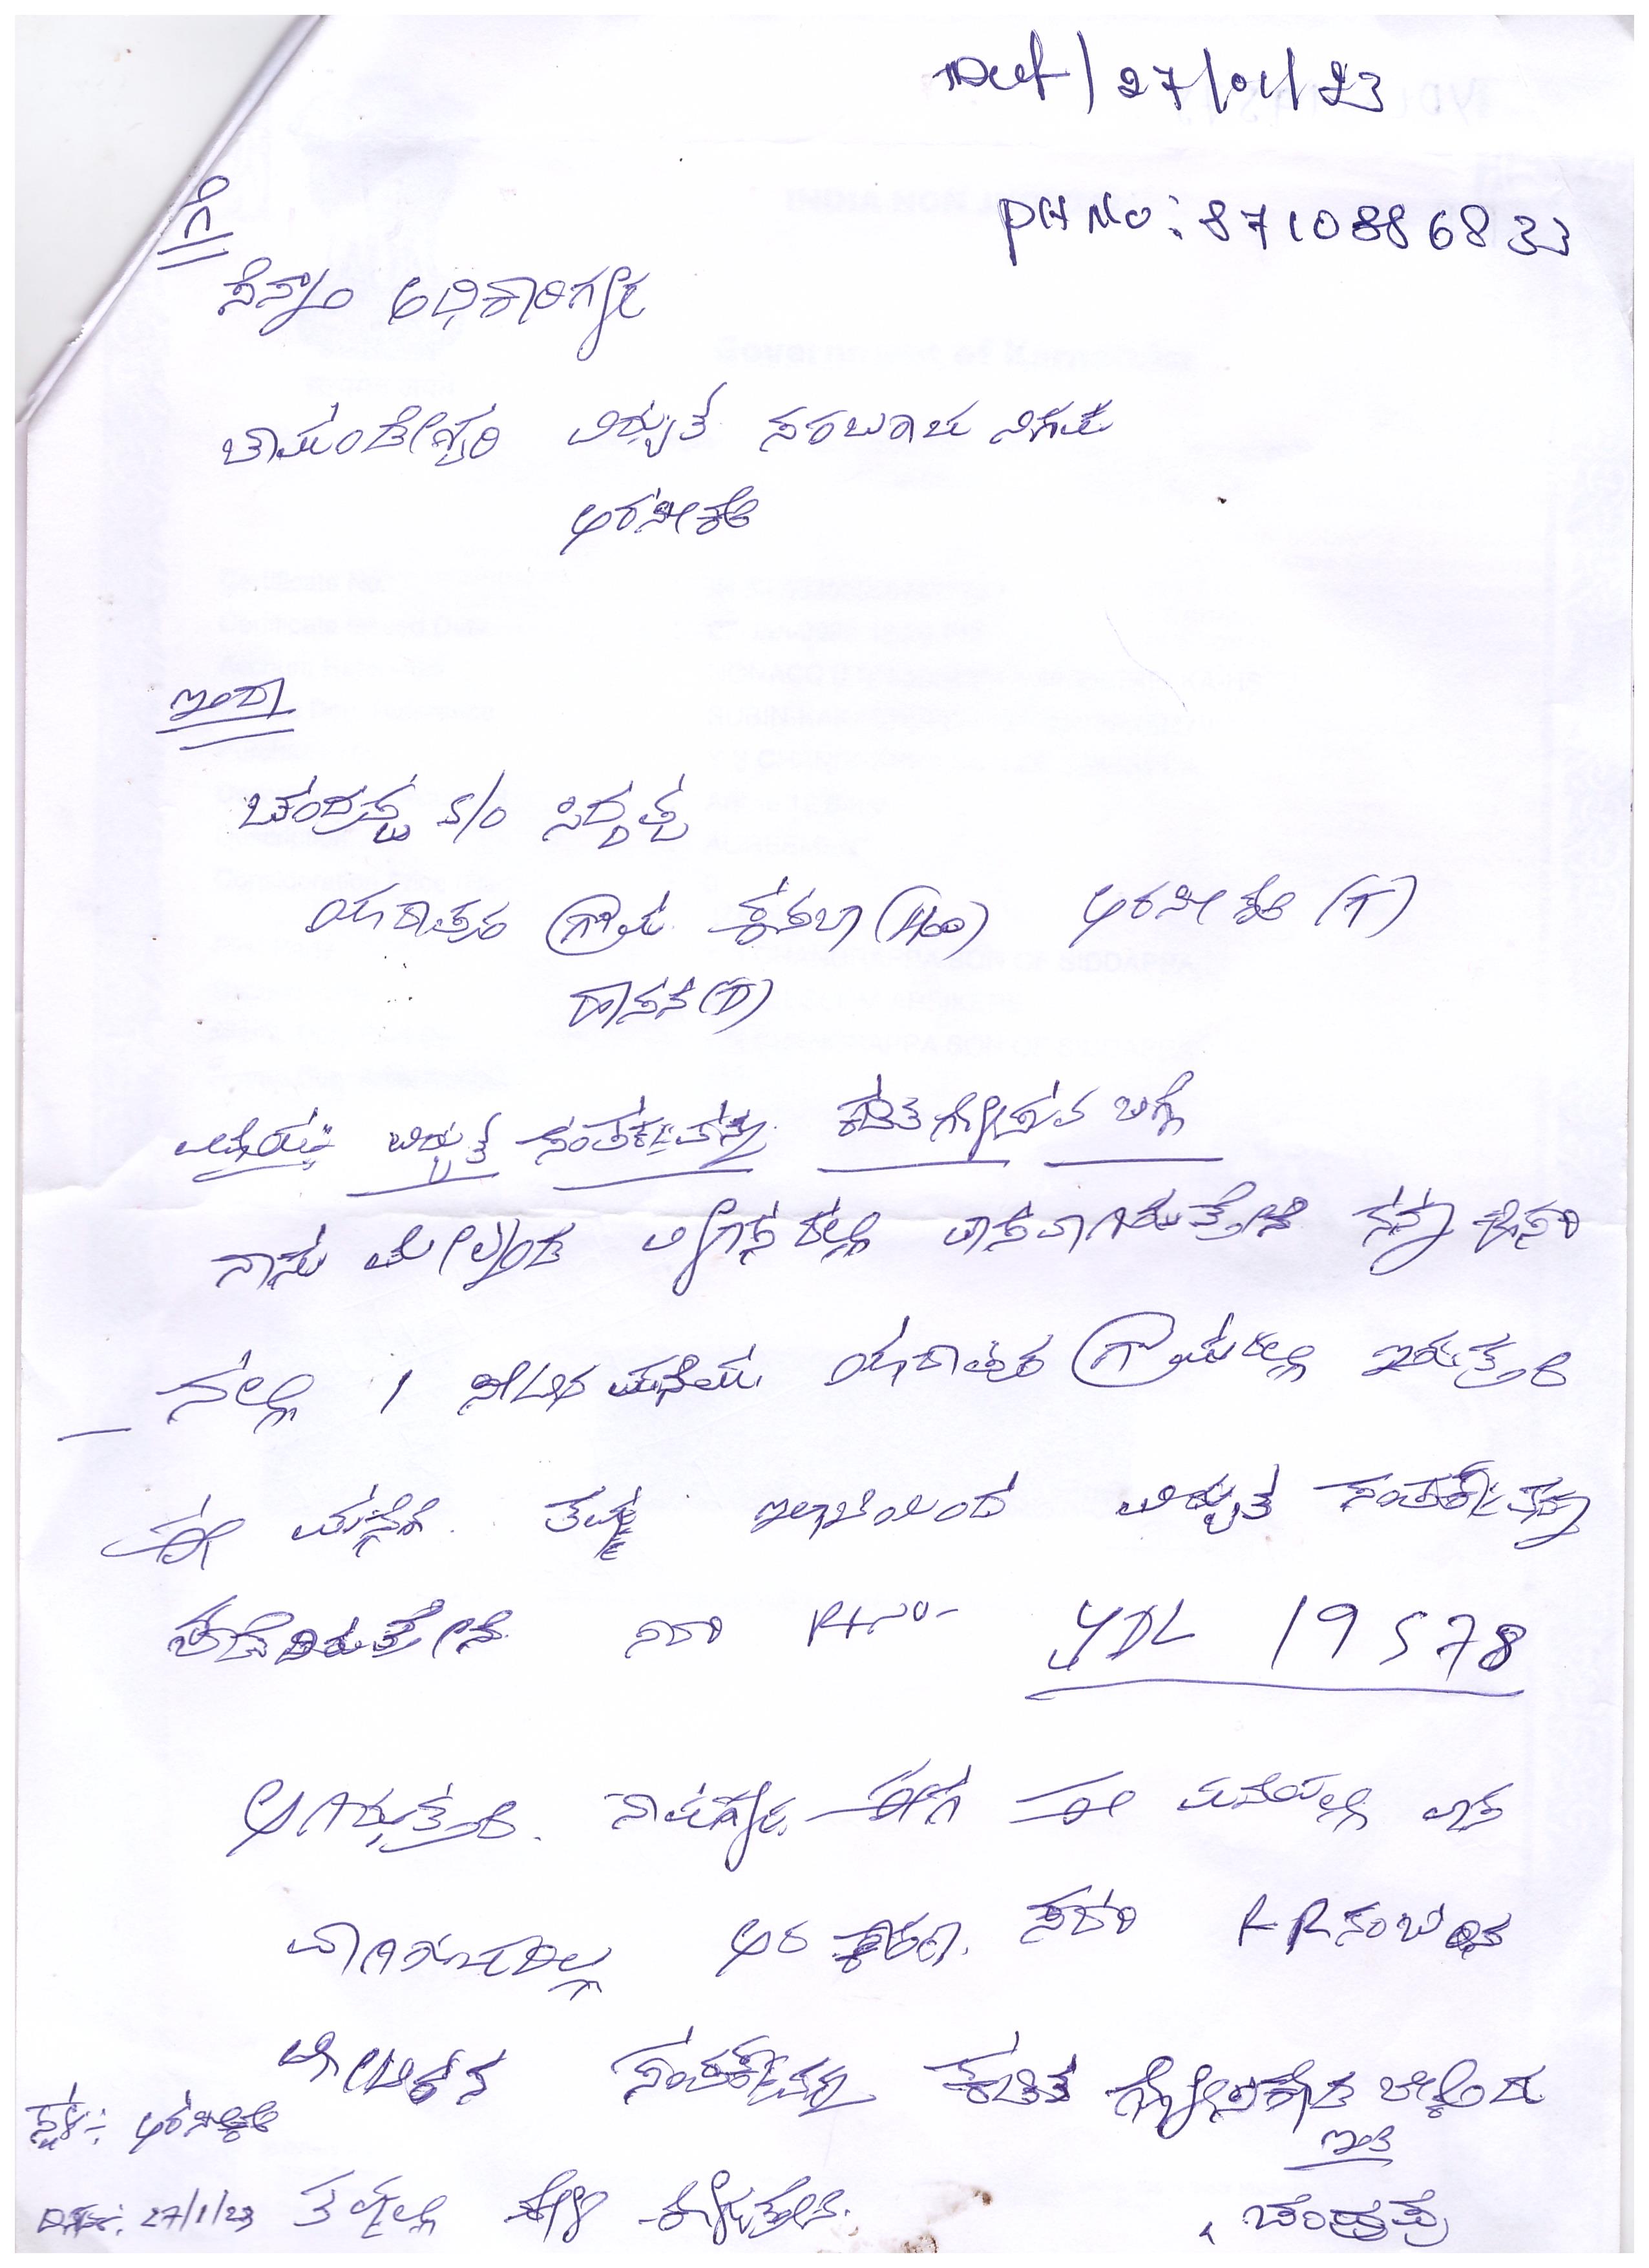 Date / 27/01/23
PH No: 8710886833
ಗೆ
ಸೆಸ್ಕಾಂ ಅಧಿಕಾರಿಗಳು
ಚಾಮುಂಡೇಶ್ವರಿ ವಿದ್ಯುತ್ ಸರಬರಾಜು ನಿಗಮ
ಅರಸೀಕೆರೆ
ಇಂದಾ
ಚಂದ್ರಪ್ಪ S/O ಸಿದ್ದಪ್ಪ
ಯಾದಾಪುರ ಗ್ರಾಮ ಕಸಬಾ (Ho) ಅರಸೀಕೆರೆ (T)
ಹಾಸನ (D)
ವಿಷಯ: ವಿದ್ಯುತ್ ಸಂಪರ್ಕವನ್ನು ಕಡಿತಗೊಳಿಸುವ ಬಗ್ಗೆ
ನಾನು ಮೇಲ್ಕಂಡ ವಿಳಾಸದಲ್ಲಿ ವಾಸವಾಗಿರುತ್ತೇನೆ ನನ್ನ ಹೆಸರಿ
ನಲ್ಲಿ 1 ಮನೆಯು ಯಾದಾಪುರ ಗ್ರಾಮದಲ್ಲಿ ಇರುತ್ತದೆ
ಈ ಮನೆಗೆ ತಮ್ಮ ಇಲಾಖೆಯಿಂದ ವಿದ್ಯುತ್ ಸಂಪರ್ಕವನ್ನು
ಪಡೆದಿರುತ್ತೇನೆ ಸದರಿ RR NO- YDL 19578
ಆಗಿರುತ್ತದೆ. ನಾವುಗಳು ಈಗ ಈ ಮನೆಯಲ್ಲಿ ವಾಸ
ವಾಗಿರುವುದಿಲ್ಲ ಆದ ಕಾರಣ ಸದರಿ RR ನಂಬರಿನ
ಸಂಪರ್ಕವನ್ನು ಕಡಿತ ಗೊಳಿಸಬೇಕೆಂದು
ಸ್ಥಳ:- ಅರಸೀಕೆರೆ
ಇಂತಿ
ದಿನಾಂಕ: 27/1/23 ತಮ್ಮಲ್ಲಿ ಕೇಳಿ ಕೊಳ್ಳುತ್ತೇನೆ.
ಚಂದ್ರಪ್ಪ